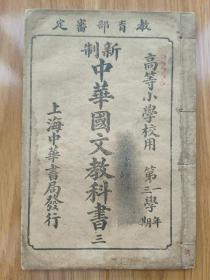 教育部審定
高等小學校用
第一學年
第三學期
新制
中華國文教科書三
上海中華書局發行